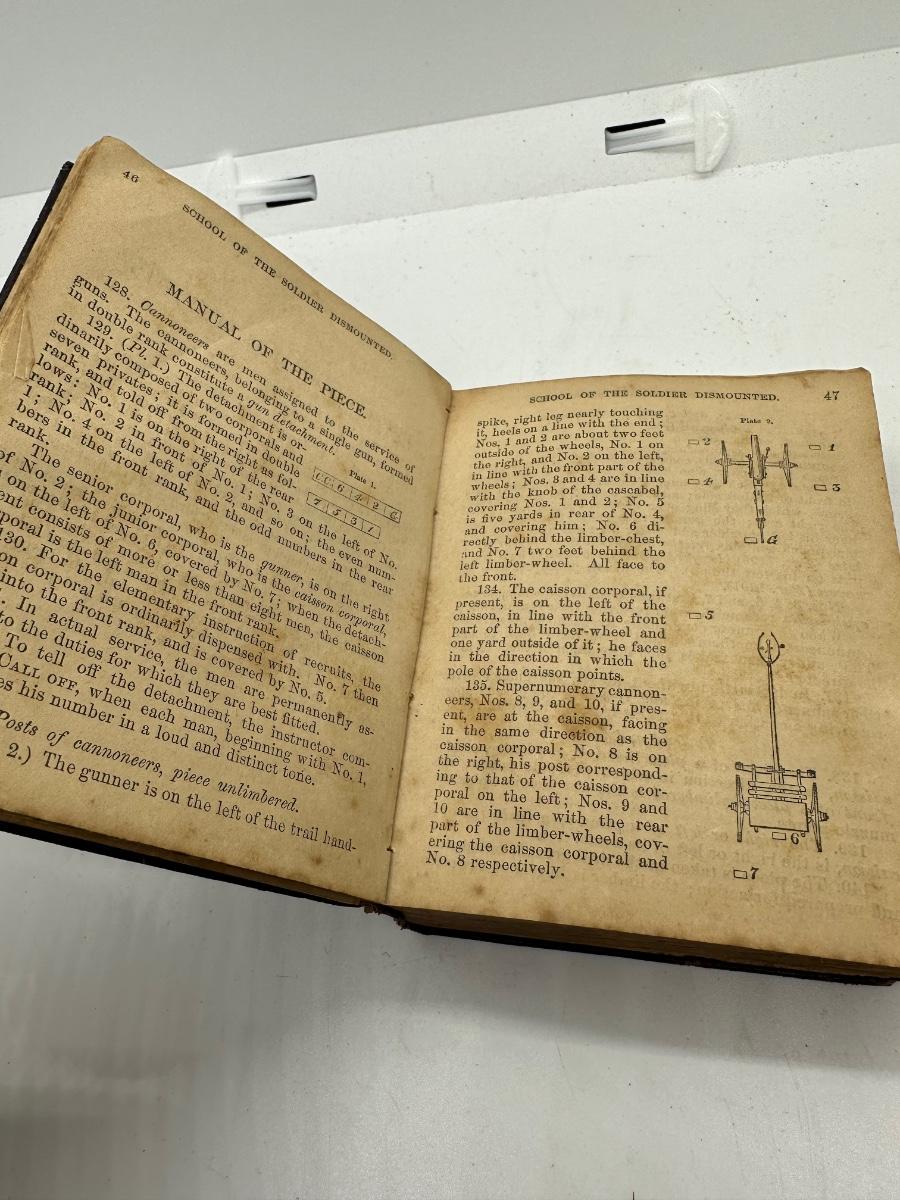 46
SCHOOL OF THE SOLDIER DISMOUNTED.
MANUAL OF THE PIECE.
128. Cannoneers are men assigned to the service of
guns. The cannoneers, belonging to a single gun, formed
in double rank constitute a gun detachment.
129. (Pl. 1.) The detachment is or-
dinarily composed of two corporals and
seven privates; it is formed in double
rank, and told off from the right as fol-
lows: No. 1 is on the right of the rear
rank; No. 2 in front of No. 1; No. 3 on the left of No.
1; No. 4 on the left of No. 2, and so on; the even num-
bers in the front rank, and the odd numbers in the rear
rank.
Plate 1.
C.C. 6 4 2 G
7 5 3 1
The senior corporal, who is the gunner, is on the right
of No. 2; the junior corporal, who is the caisson corporal,
on the left of No. 6, covered by No. 7; when the detach-
ent consists of more or less than eight men, the caisson
poral is the left man in the front rank.
130. For the elementary instruction of recruits, the
on corporal is ordinarily dispensed with. No. 7 then
into the front rank, and is covered by No. 5.
In actual service, the men are permanently as-
to the duties for which they are best fitted.
To tell off the detachment, the instructor com-
CALL OFF, when each man, beginning with No. 1,
es his number in a loud and distinct tone.
Posts of cannoneers, piece unlimbered.
2.) The gunner is on the left of the trail hand-
SCHOOL OF THE SOLDIER DISMOUNTED.
47
spike, right leg nearly touching
it, heels on a line with the end;
Nos. 1 and 2 are about two feet
outside of the wheels, No. 1 on
the right, and No. 2 on the left,
in line with the front part of the
wheels; Nos. 3 and 4 are in line
with the knob of the cascabel,
covering Nos. 1 and 2; No. 5
is five yards in rear of No. 4,
and covering him; No. 6 di-
rectly behind the limber-chest,
and No. 7 two feet behind the
left limber-wheel. All face to
the front.
134. The caisson corporal, if
present, is on the left of the
caisson, in line with the front
part of the limber-wheel and
one yard outside of it; he faces
in the direction in which the
pole of the caisson points.
135. Supernumerary cannon-
eers, Nos. 8, 9, and 10, if pres-
ent, are at the caisson, facing
in the same direction as the
caisson corporal; No. 8 is on
the right, his post correspond-
ing to that of the caisson cor-
poral on the left; Nos. 9 and
10 are in line with the rear
part of the limber-wheels, cov-
ering the caisson corporal and
No. 8 respectively.
Plate 2.
2
1
4
3
G
5
6
7